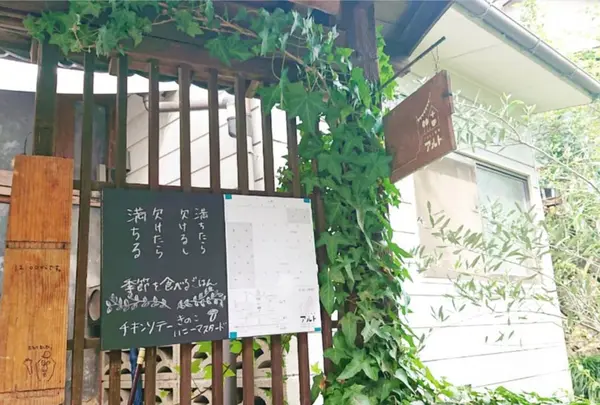 満ちたら
欠けるし
欠けたら
満ちる
季節を食べるごはん
チキンソテー きのこ
ハニーマスタード
アルト
アルト